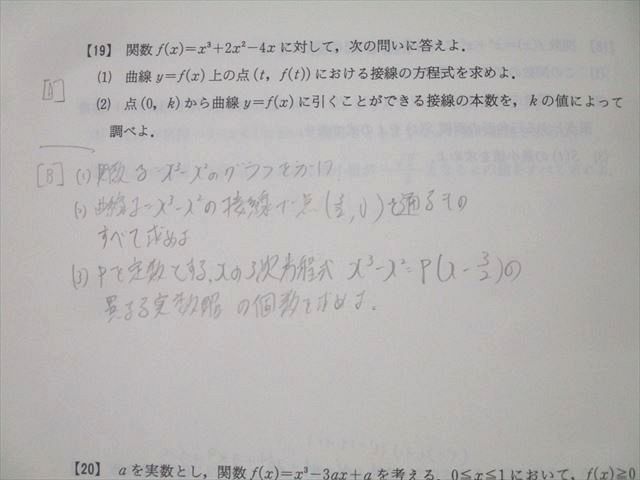 【19】 関数 f(x)=x³+2x²−4x に対して，次の問いに答えよ．
[A] (1) 曲線 y=f(x) 上の点 (t, f(t)) における接線の方程式を求めよ．
(2) 点 (0, k) から曲線 y=f(x) に引くことができる接線の本数を，k の値によって
調べよ．
[B] (1) 関数 y=x³−x² のグラフをかけ
(2) 曲線 y=x³−x² の接線で点 (3/2, 0) を通るもの
すべて求めよ
(3) Pを定数とする、xの3次方程式 x³−x²=P(x−3/2)の
異なる実数解の個数を求めよ.
【20】 a を実数とし，関数 f(x)=x³−3ax+a を考える．0≦x≦1 において，f(x)≧0